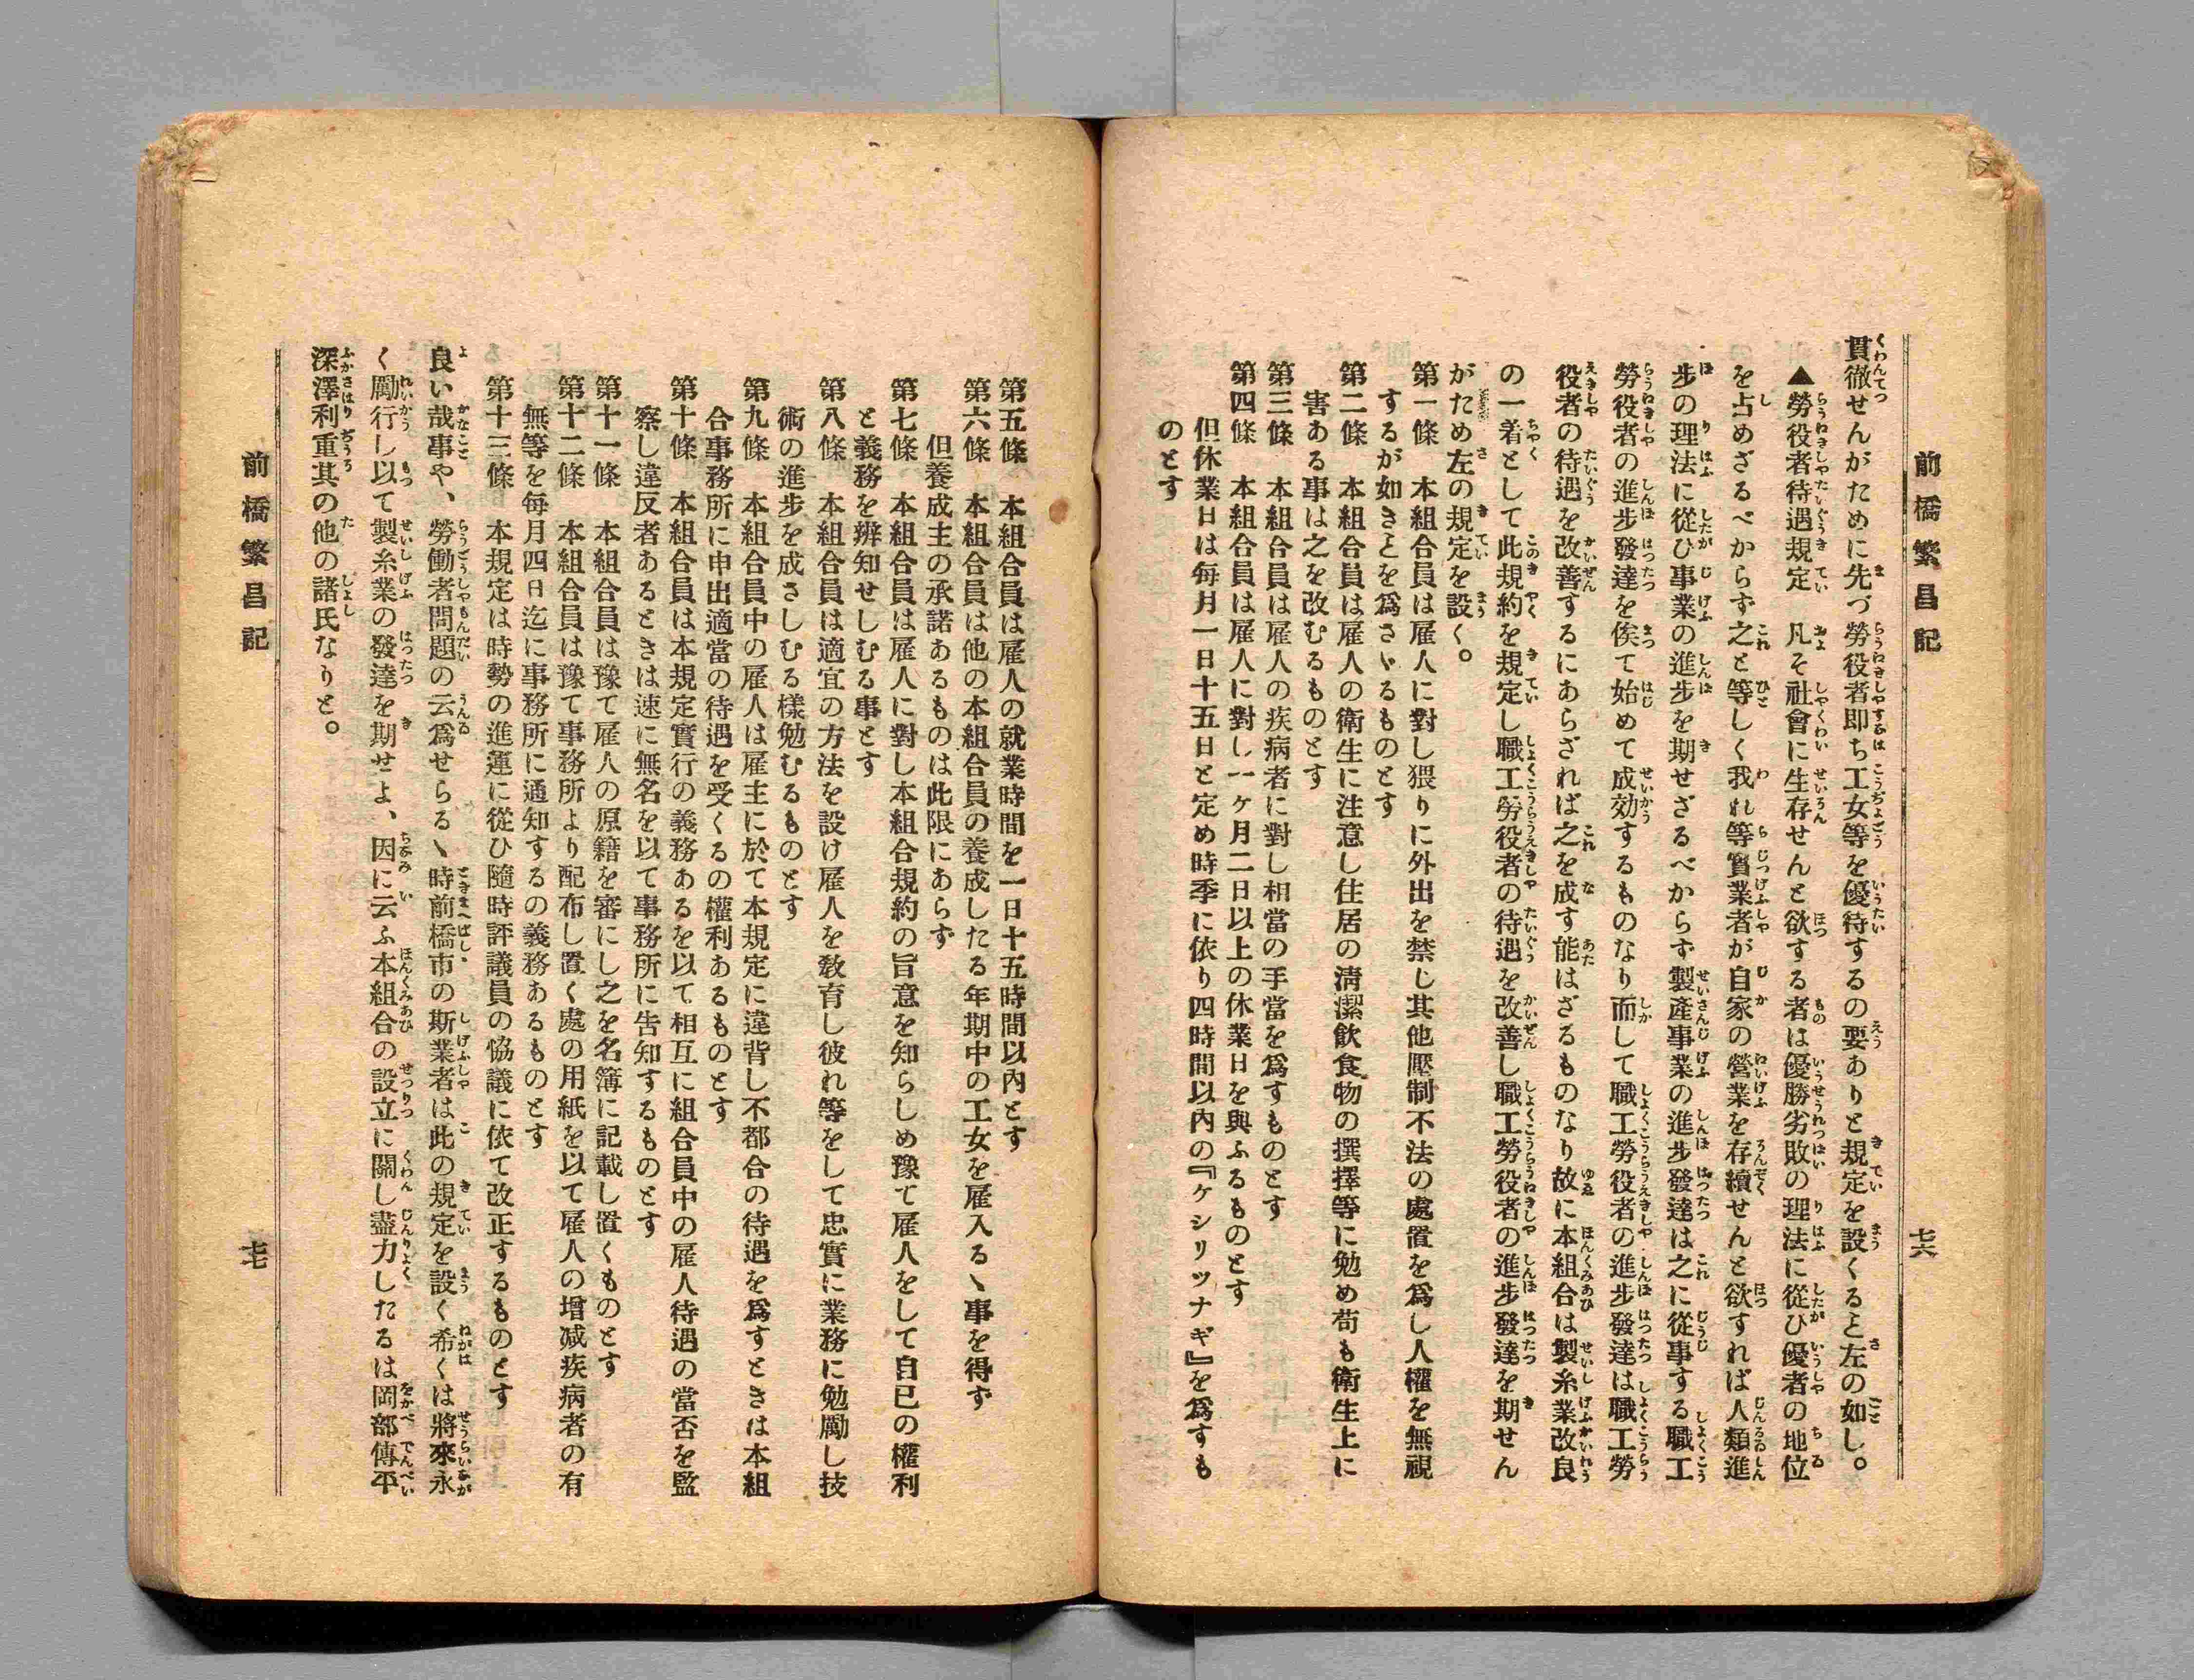 前橋繁昌記
七六
貫徹せんがために先づ勞役者即ち工女等を優待するの要ありと規定を設くると左の如し。
▲勞役者待遇規定　凡そ社會に生存せんと欲する者は優勝劣敗の理法に從ひ優者の地位
を占めざるべからず之と等しく我れ等實業者が自家の營業を存續せんと欲すれば人類進
步の理法に從ひ事業の進步を期せざるべからず製產事業の進步發達は之に從事する職工
勞役者の進步發達を俟て始めて成効するものなり而して職工勞役者の進步發達は職工勞
役者の待遇を改善するにあらざれば之を成す能はざるものなり故に本組合は製糸業改良
の一着として此規約を規定し職工勞役者の待遇を改善し職工勞役者の進步發達を期せん
がため左の規定を設く。
第一條　本組合員は雇人に對し猥りに外出を禁じ其他壓制不法の處置を爲し人權を無視
するが如きとを爲さゝるものとす
第二條　本組合員は雇人の衛生に注意し住居の淸潔飮食物の撰擇等に勉め苟も衛生上に
害ある事は之を改むるものとす
第三條　本組合員は雇人の疾病者に對し相當の手當を爲すものとす
第四條　本組合員は雇人に對し一ヶ月二日以上の休業日を與ふるものとす
但休業日は每月一日十五日と定め時季に依り四時間以内の『ケシリツナギ』を爲すも
のとす
第五條　本組合員は雇人の就業時間を一日十五時間以内とす
第六條　本組合員は他の本組合員の養成したる年期中の工女を雇入るゝ事を得ず
但養成主の承諾あるものは此限にあらず
第七條　本組合員は雇人に對し本組合規約の旨意を知らしめ豫て雇人をして自已の權利
と義務を辨知せしむる事とす
第八條　本組合員は適宜の方法を設け雇人を敎育し彼れ等をして忠實に業務に勉勵し技
術の進步を成さしむる樣勉むるものとす
第九條　本組合員中の雇人は雇主に於て本規定に違背し不都合の待遇を爲すときは本組
合事務所に申出適當の待遇を受くるの權利あるものとす
第十條　本組合員は本規定實行の義務あるを以て相互に組合員中の雇人待遇の當否を監
察し違反者あるときは速に無名を以て事務所に告知するものとす
第十一條　本組合員は豫て雇人の原籍を審にし之を名簿に記載し置くものとす
第十二條　本組合員は豫て事務所より配布し置く處の用紙を以て雇人の增減疾病者の有
無等を每月四日迄に事務所に通知するの義務あるものとす
第十三條　本規定は時勢の進運に從ひ隨時評議員の恊議に依て改正するものとす
良い哉事や、勞働者問題の云爲せらるゝ時前橋市の斯業者は此の規定を設く希くは將來永
く勵行し以て製糸業の發達を期せよ、因に云ふ本組合の設立に關し盡力したるは岡部傳平
深澤利重其の他の諸氏なりと。
前橋繁昌記
七七